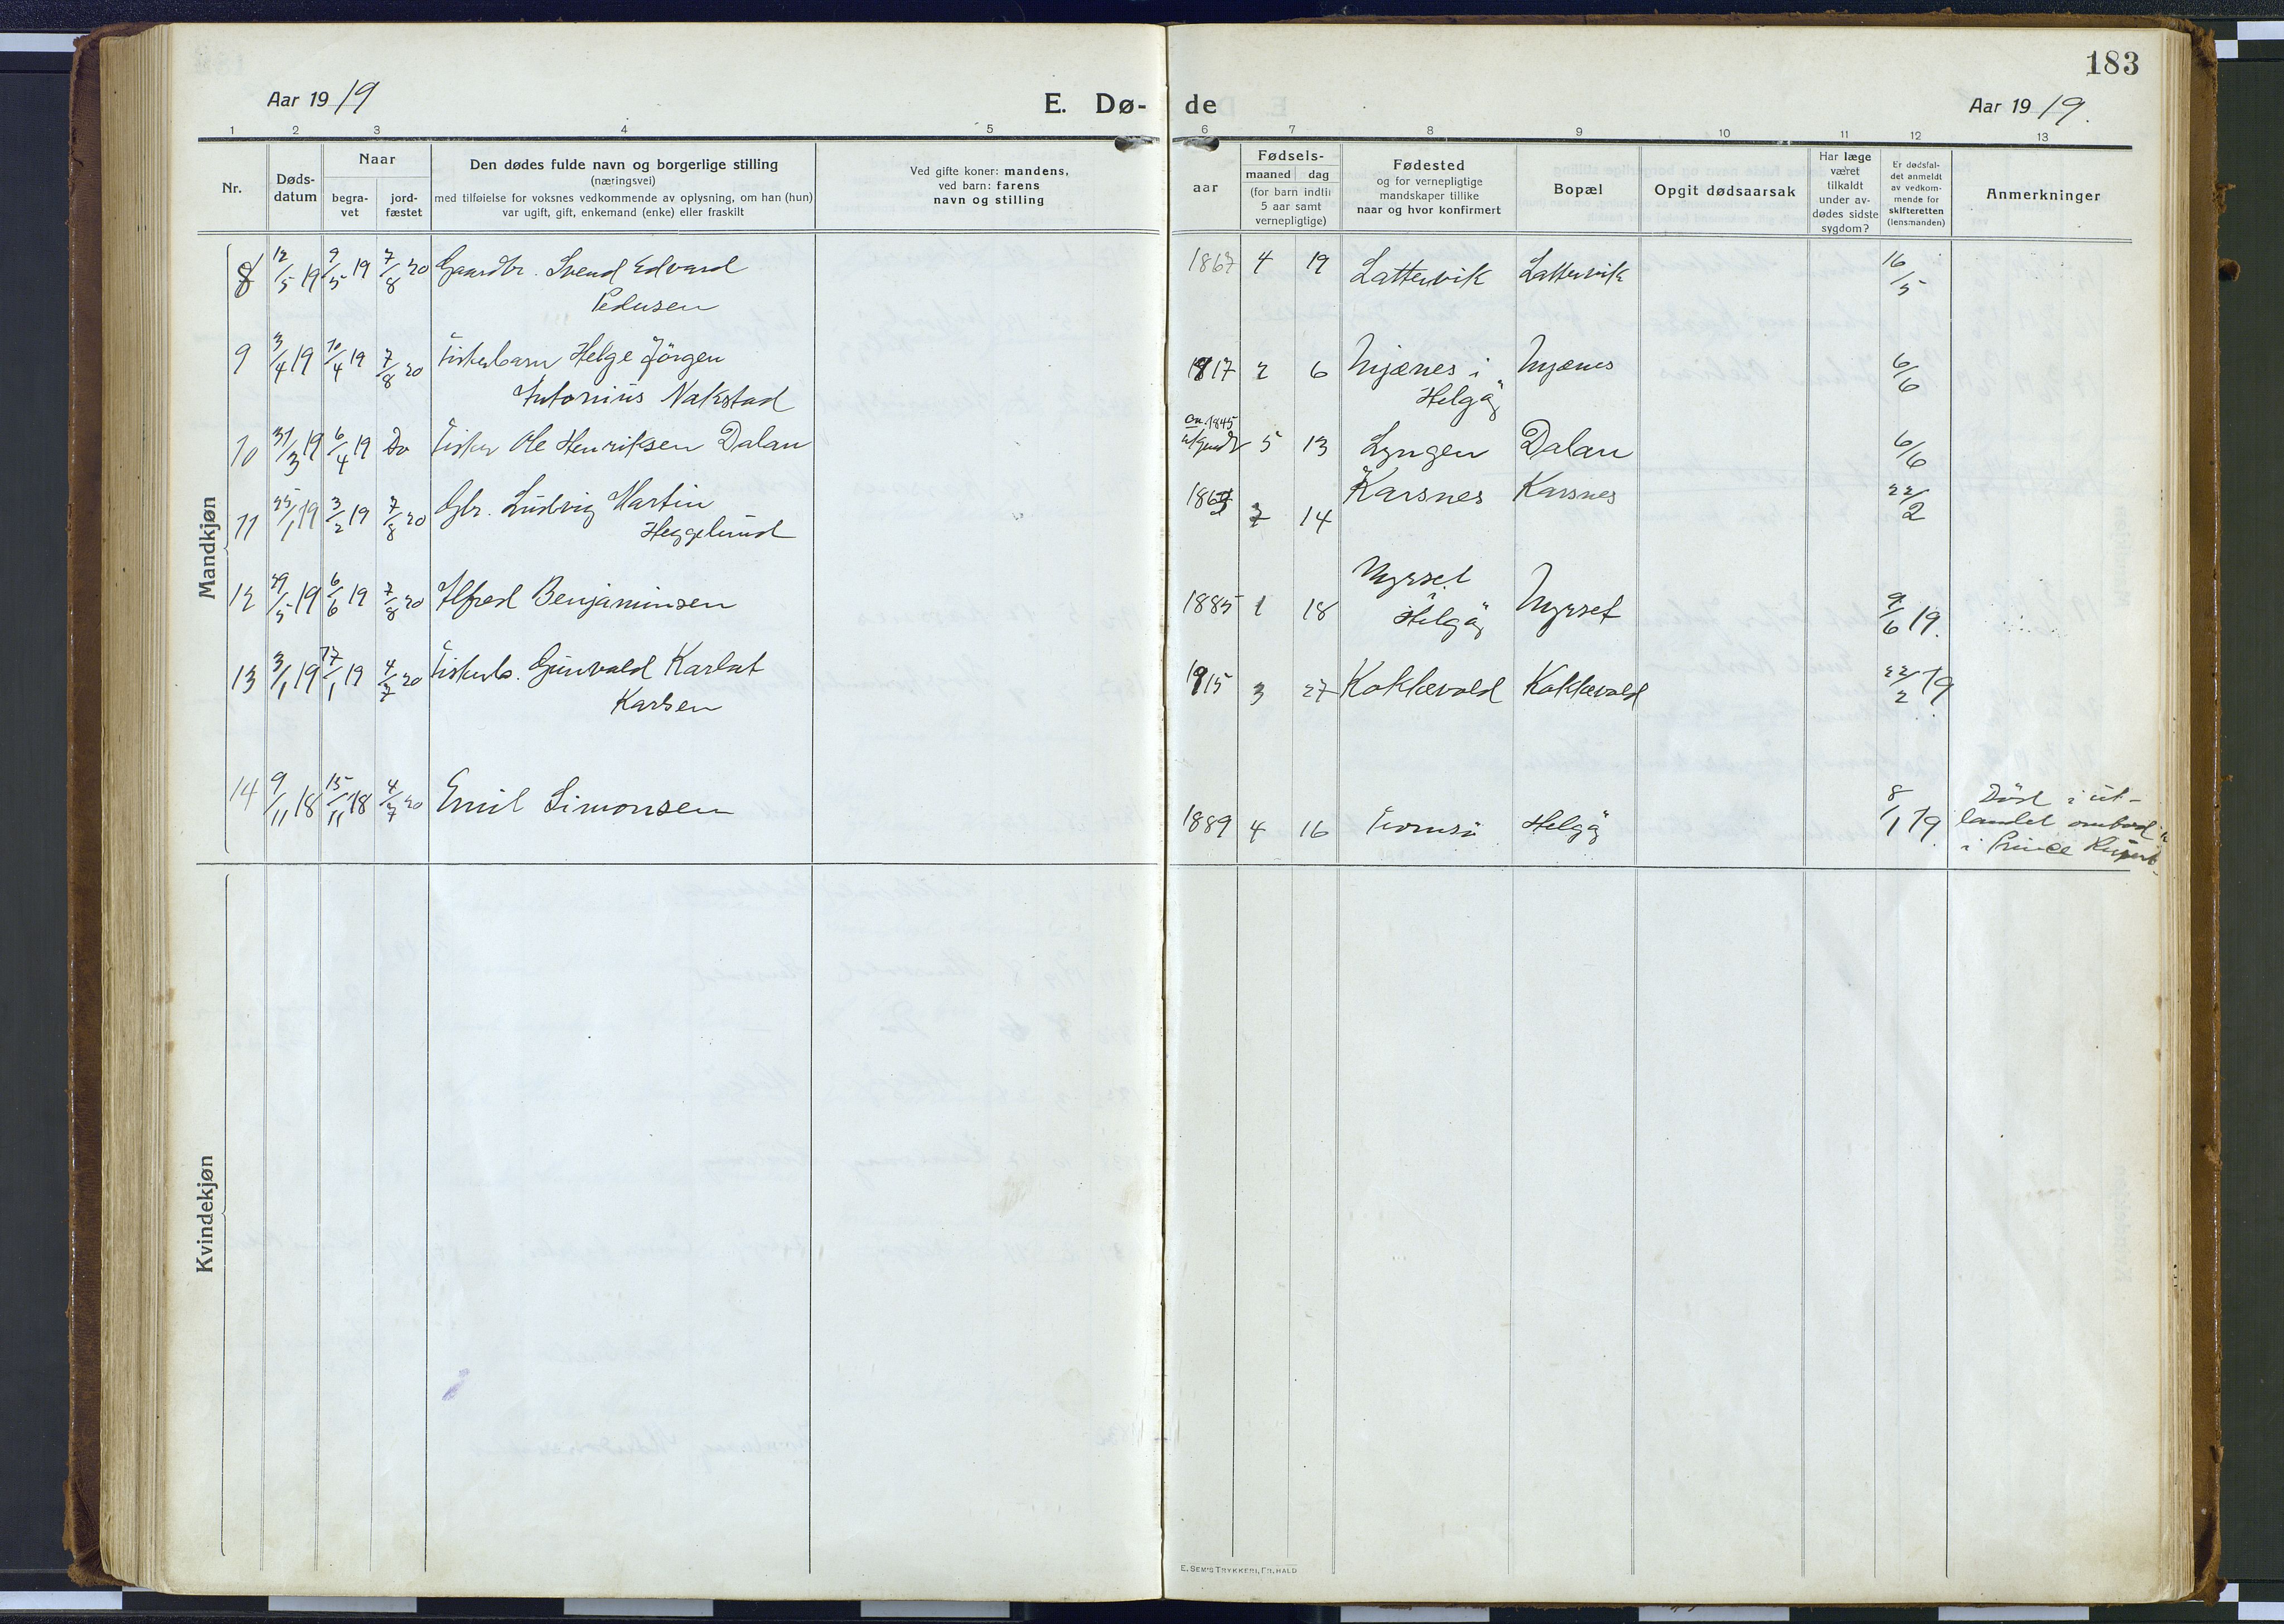 183
Aar 1919
E. Dø-
de
Aar 1919.
1 2 3 4 5 6 7 8 9 10 11 12 13
Nr.
Døds-
datum
Naar
begra-
vet
jord-
fæstet
Den dødes fulde navn og borgerlige stilling
(næringsvei)
med tilføielse for voksnes vedkommende av oplysning, om han (hun)
var ugift, gift, enkemand (enke) eller fraskilt
Ved gifte koner: mandens,
ved barn: farens
navn og stilling
Fødsels-
aar
maaned dag
(for barn indtil
5 aar samt
vernepligtige)
Fødested
og for vernepligtige
mandskaper tillike
naar og hvor konfirmert
Bopæl
Opgit dødsaarsak
Har læge
været
tilkaldt
under av-
dødes sidste
sygdom?
Er dødsfal-
det anmeldt
av vedkom-
mende for
skifteretten
(lensmanden)
Anmerkninger
Mandkjøn
8 12/5 19 9/5 19 7/8 20 Gaardbr. Svend Edvard 1867 4 19 Lattervik Lattervik 16/5
Pedersen
9 3/4 19 10/4 19 7/8 20 Fiskerbarn Helge Jörgen 1917 2 6 Mjænes i Mjænes 6/6
Antonius Nakstad Helgöy
10 31/3 19 6/4 19 Do Fisker Ole Henriksen Dalan ca. 1845 5 13 Lyngen Dalan 6/6
11 25/1 19 3/2 19 7/8 20 Gbr. Ludvig Martin 7 14 Karsnes Karsnes 22/2
Heggelund
12 29/5 19 6/6 19 7/8 20 Alfred Benjaminsen 1885 1 18 Myrset Myrset 9/6 19.
Helgöy
13 3/1 19 17/1 19 4/7 20 Fiskerb. Gunvald Karlot 1915 3 27 Koklevold Koklevold 22/2 19.
Karlsen
14 9/11 18 15/11 18 4/7 20 Emil Simonsen 1889 4 16 Tromsö Helgöy 8/1 19. Död i ut-
landet ombord
i Prince Rupert
Kvindekjøn
E. SEM'S TRYKKERI, FR.HALD